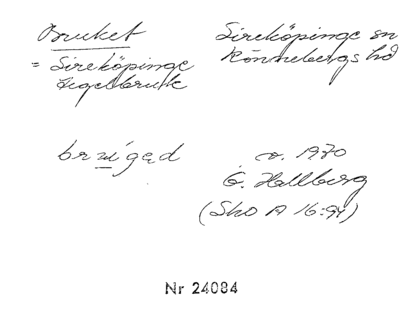 Bruket
Sireköpinge sn
= Sireköpinge
Rönnebergs hd
tegelbruk
ca. 1970
G. Hallberg
(Sko A 16:94)
Nr 24084